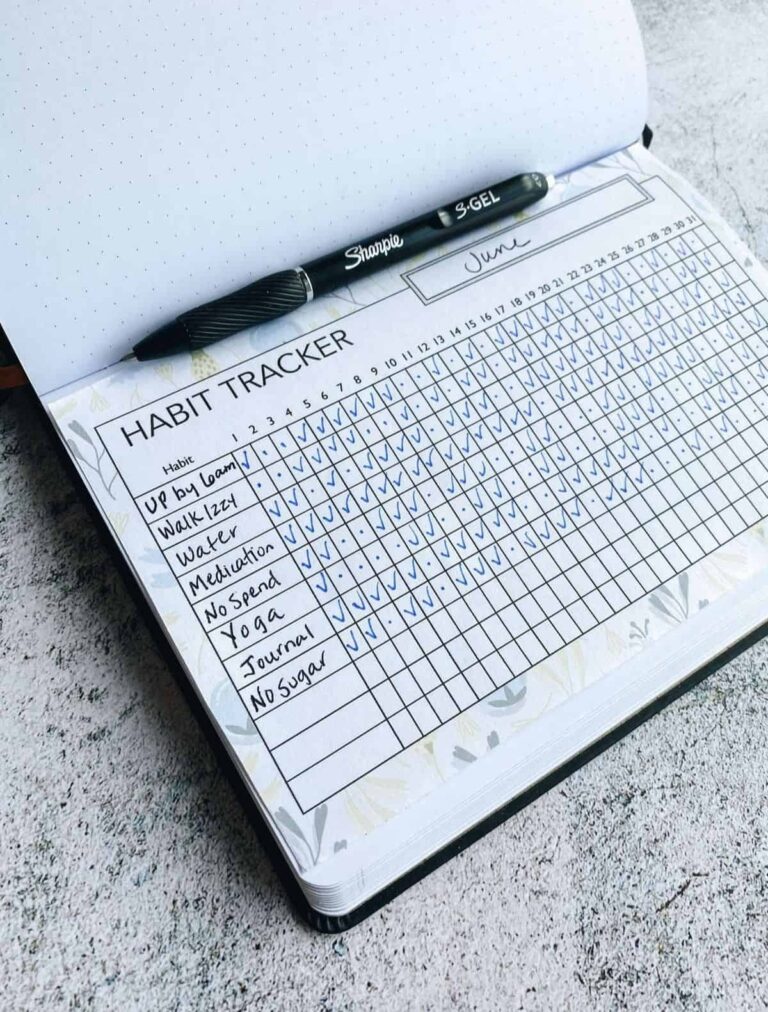 S·GEL
Sharpie
June
HABIT TRACKER
Habit 1 2 3 4 5 6 7 8 9 10 11 12 13 14 15 16 17 18 19 20 21 22 23 24 25 26 27 28 29 30 31
UP by 6am
Walk Izzy
Water
Medication
No Spend
Yoga
Journal
No Sugar